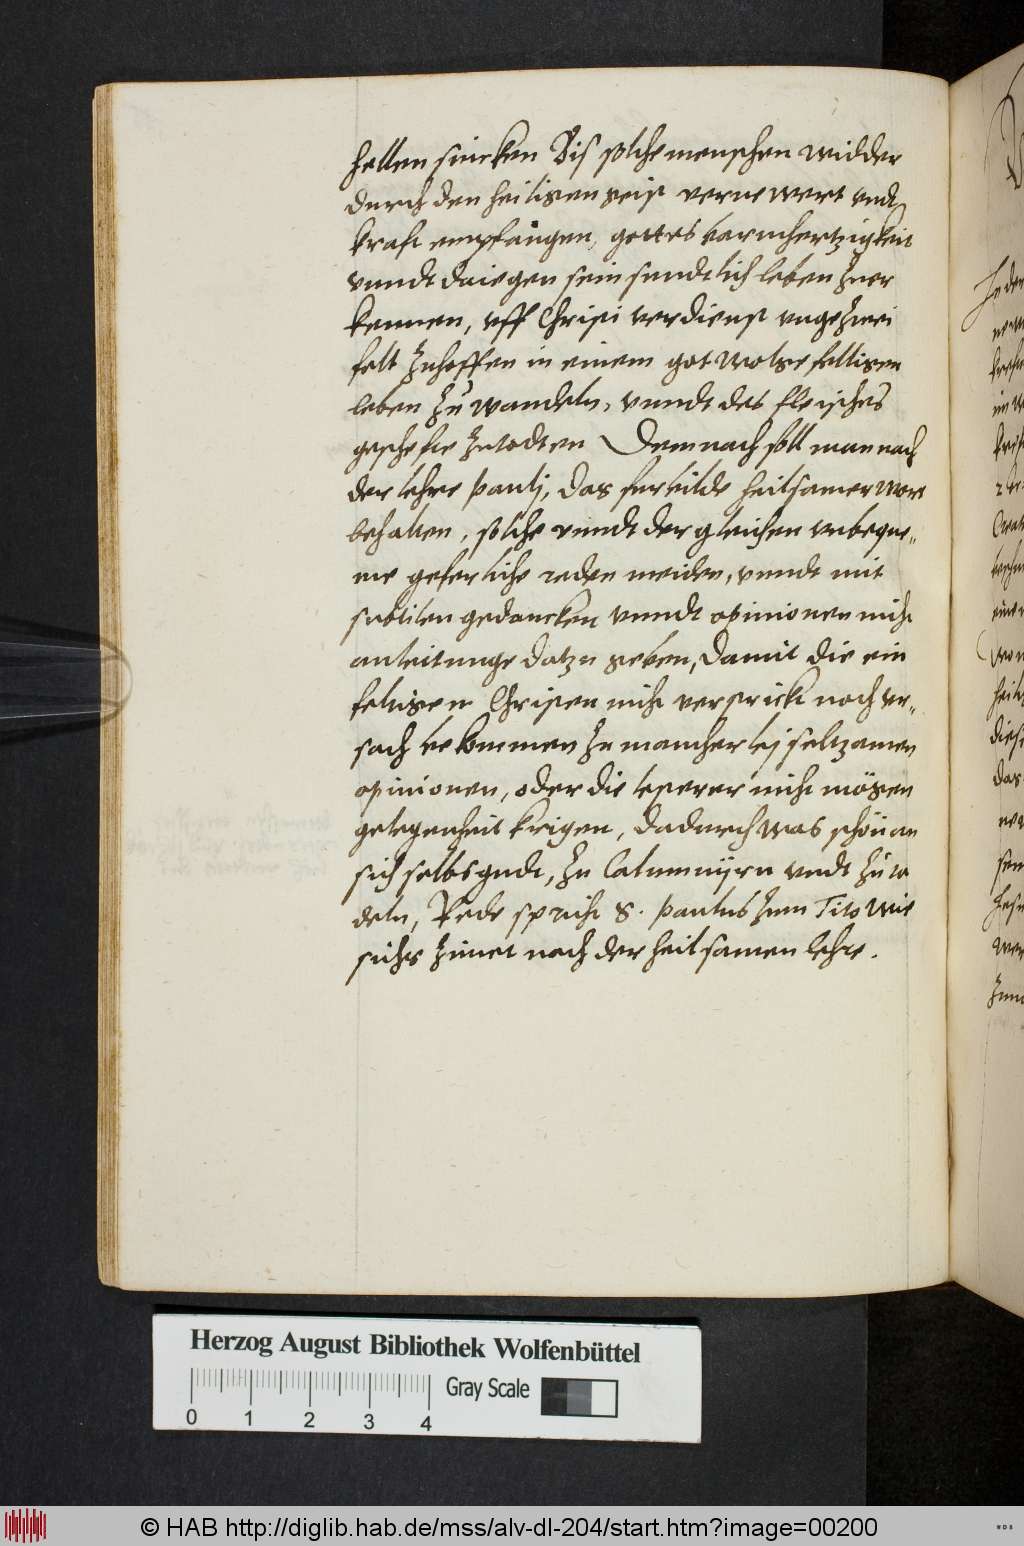 hellen sincken Bis solche menschen widder
durch den heiligen geist vernewert vnd
kraft empfangen, gottes barmhertzigkeit
vnndt daiegen sein sundtlich leben zuer
kennen, vff Christi verdienst vngezwei
felt zuhoffen in einem gotwolgefelligen
leben zu wandeln, vnndt des fleisches
geschefte zutodten Demnach soll man nach
der lehre Paulj, das furbilde heilsamer wort
behalten, solche vnndt der gleichen vnbeque-
me geferliche reden meiden, vnndt mit
subtilen gedancken vnndt opinionen nicht
anleitunge datzu geben, damit die ein
feltigen Christen nicht verstrickt noch vr-
sach bekommen zu mancherlej seltzamen
opinionen, oder die lesterer nicht mögen
gelegenheit krigen, dadurch was schön an
sich selbs gudt, zu Calumnijrn vndt zu ta
deln, Rede spricht S. Paulus zum Tito wie
sichs zimet nach der heilsamen lehre.
Herzog August Bibliothek Wolfenbüttel
Gray Scale
0 1 2 3 4
© HAB http://diglib.hab.de/mss/alv-dl-204/start.htm?image=00200